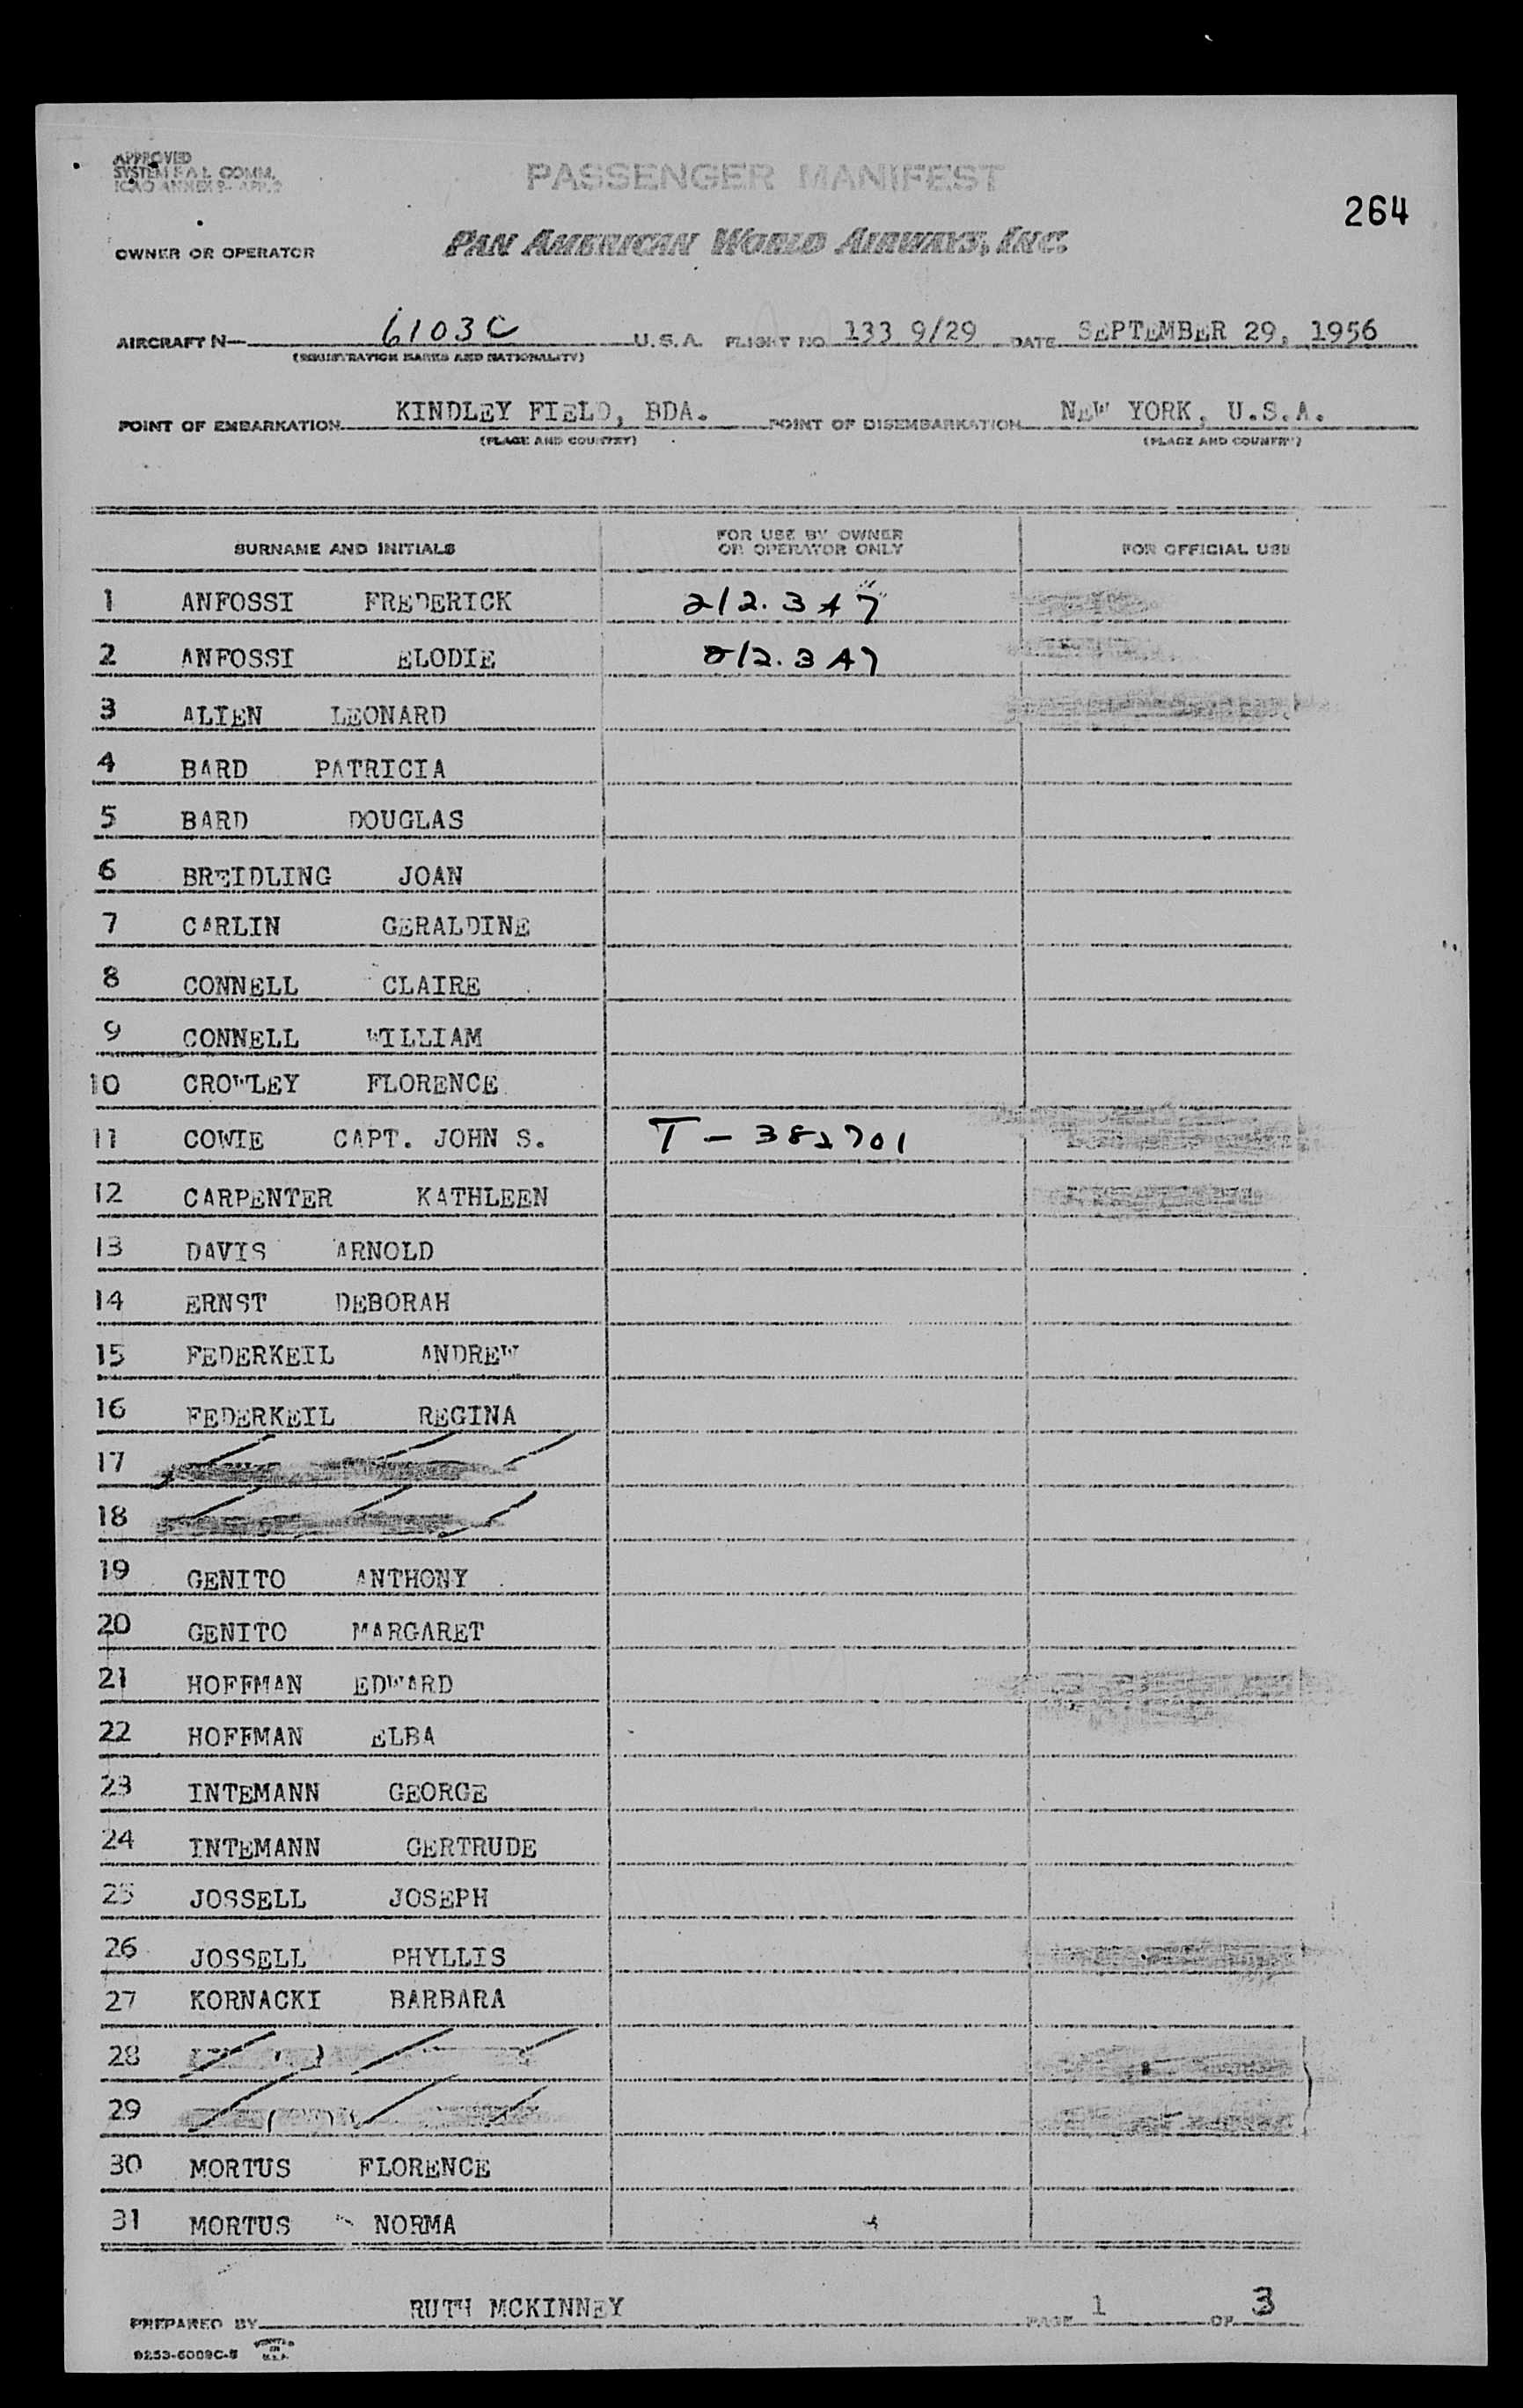 APPROVED
SYSTEM F.A.L. COMM.
ICAO ANNEX 9- APP.2
PASSENGER MANIFEST
264
OWNER OR OPERATOR PAN AMERICAN WORLD AIRWAYS, INC.
AIRCRAFT N- 6103C U.S.A. FLIGHT NO. 133 9/29 DATE SEPTEMBER 29, 1956
(REGISTRATION MARKS AND NATIONALITY)
POINT OF EMBARKATION KINDLEY FIELD, BDA. POINT OF DISEMBARKATION NEW YORK, U.S.A.
(PLACE AND COUNTRY) (PLACE AND COUNTRY)
SURNAME AND INITIALS FOR USE BY OWNER OR OPERATOR ONLY FOR OFFICIAL USE
1 ANFOSSI FREDERICK 212.3 A7
2 ANFOSSI ELODIE 212.3 A7
3 ALIEN LEONARD
4 BARD PATRICIA
5 BARD DOUGLAS
6 BREIDLING JOAN
7 CARLIN GERALDINE
8 CONNELL CLAIRE
9 CONNELL WILLIAM
10 CROWLEY FLORENCE
11 COWIE CAPT. JOHN S. T - 382701
12 CARPENTER KATHLEEN
13 DAVIS ARNOLD
14 ERNST DEBORAH
15 FEDERKEIL ANDREW
16 FEDERKEIL REGINA
17
18
19 GENITO ANTHONY
20 GENITO MARGARET
21 HOFFMAN EDWARD
22 HOFFMAN ELBA
23 INTEMANN GEORGE
24 INTEMANN GERTRUDE
25 JOSSELL JOSEPH
26 JOSSELL PHYLLIS
27 KORNACKI BARBARA
28
29
30 MORTUS FLORENCE
31 MORTUS NORMA
PREPARED BY RUTH MCKINNEY PAGE 1 OF 3
9253-6009C-5 PRINTED IN U.S.A.